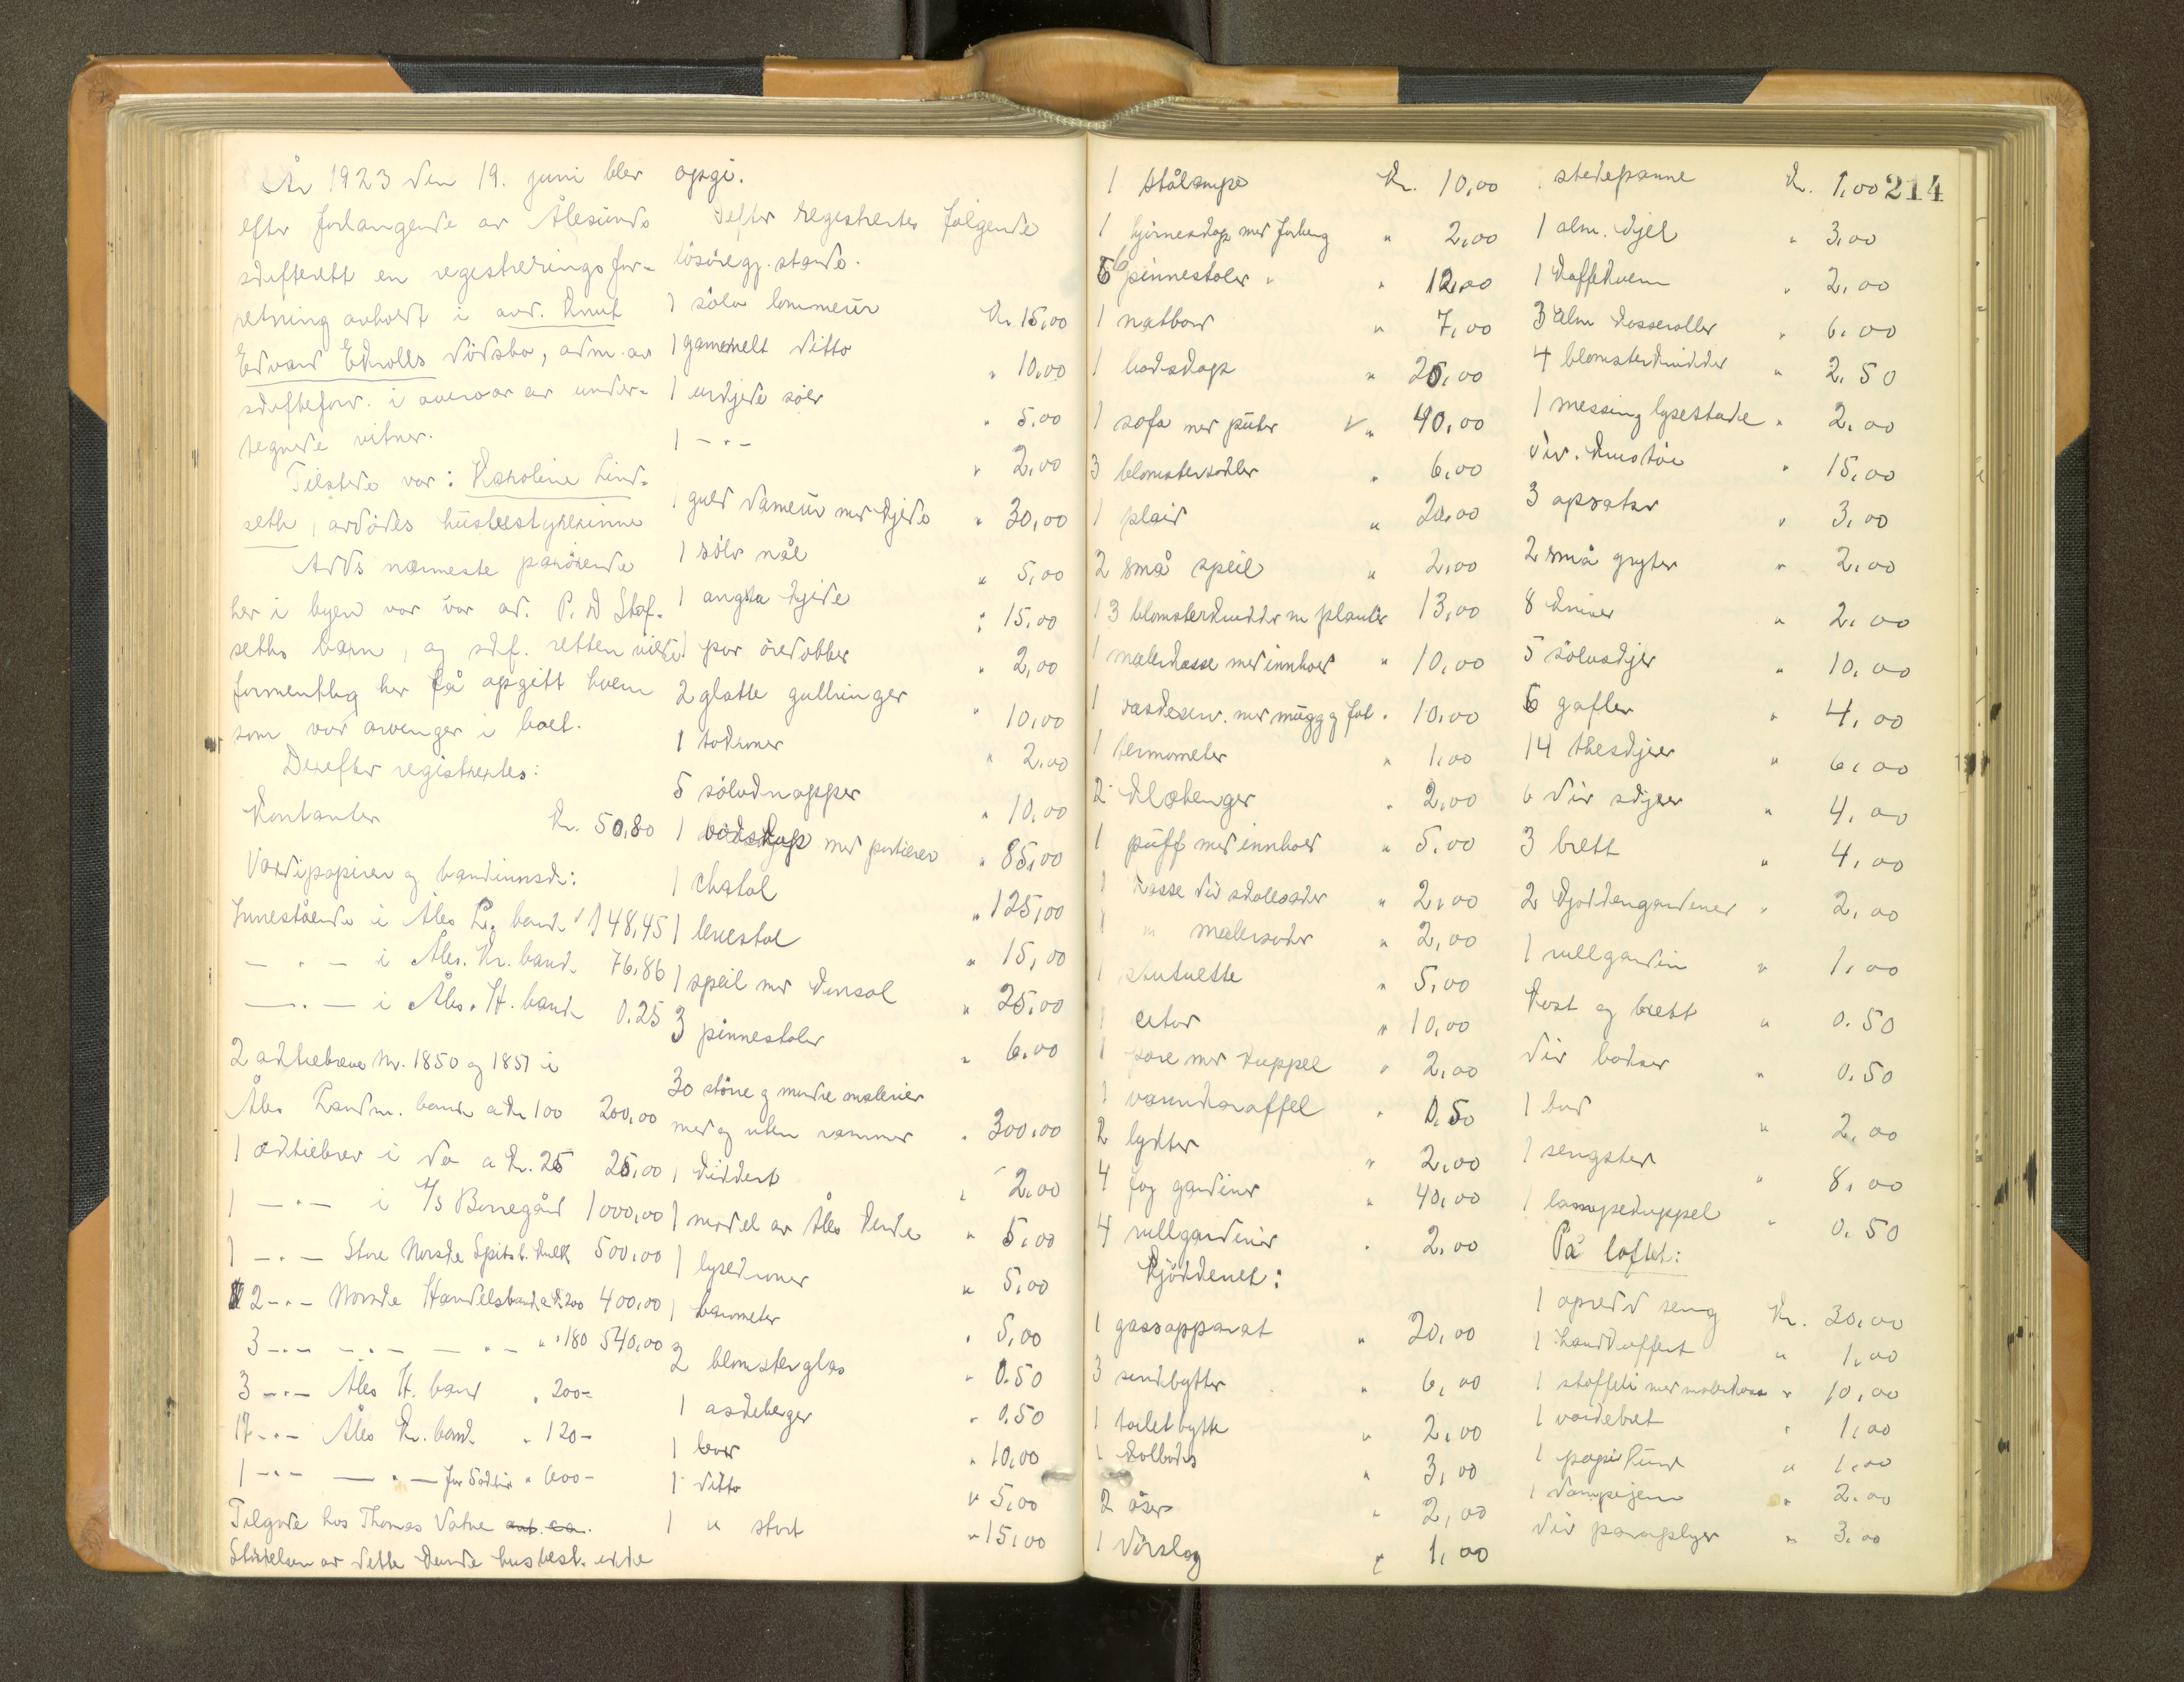 År 1923 den 19. juni blev
efter forlangende av Ålesunds
skifterett en registreringsfor-
retning avholdt i avd. Knut
Edvard Ekrolls dödsbo, adm. av
skifteforv. i overvær av under-
tegnede vitner.
Tilstede var: Karoline Lind-
seth, avdödes husbestyrerinne
Avds nærmeste pårörende
her i byen var
seths barn, og skif. retten vilde
formentlig her få opgitt hvem
som var arvenger i boet.
Derefter registrertes:
Kontanter Kr. 50,80
Verdipapirer og bankinnsk:
Innestående i Åles L. bank 148,45
— " — i Åles. Kr. bank 76,86
— " — i Åles. H. bank 0.25
2 aktiebreve Nr. 1850 og 1851 i
Åles Landm. bank a Kr 100 200,00
1 aktiebrev i do a Kr. 25 25,00
1 — " — i A/S Borregård 1000,00
1 — " — Store Norske Spitsb. Kulk 500,00
2 - " - Norske Handelsbank a Kr. 200 400,00
3 - " - — " — — " — " 180 540,00
3 - " - Åles H. bank " 200-
17 - " - Åles Kr. bank " 120-
1 - " - — " — " 600-
Tilgode hos Thomas Vatne
Störrelsen av dette kunde husbest. ikke
opgi.
Defter registrertes fölgende
lösöregj.stande.
1 sölv lommeur Kr. 15,00
1 gammelt ditto " 10,00
1 urkjede sölv " 5,00
1 - " - " 2,00
1 guld dameur med kjede " 30,00
1 sölv nål " 5,00
1 kjede " 15,00
1 par öredobber " 2,00
2 glatte gullringer " 10,00
1 tokroner " 2,00
5 sölvknapper " 10,00
1 med portierer " 85,00
1 chatol " 125,00
1 lenestol " 15,00
1 speil med konsol " 25,00
3 pinnestoler " 6,00
30 större og mindre malerier
med og uten rammer " 300,00
1 kikkert " 2,00
1 model av Åles kirke " 5,00
1 lysekroner " 5,00
1 barometer " 5,00
2 blomsterglas " 0.50
1 askebeger " 0.50
1 " 10,00
1 ditto " 5,00
1 " stort " 15,00
1 stålampe Kr. 10,00
1 hjörneskap med forheng " 2,00
6 pinnestoler " " 12,00
1 natbord " 7,00
1 " 25,00
1 sofa med puter " 40,00
3 blomstersokler " 6,00
1 plaid " 20,00
2 små speil " 2,00
13 blomsterkrukker m planter 13,00
1 malerkasse med innhold " 10,00
1 vaskeserv. med mugg og fat " 10,00
1 termometer " 1,00
2 klæhenger " 2,00
1 puff med innhold " 5,00
1 kasse div skolesaker " 2,00
1 " malersaker " 2,00
1 statuette " 5,00
1 citar " 10,00
1 vase med kuppel " 2,00
1 vannkaraffel " 0.50
2 lykter " 2,00
4 fag gardiner " 40,00
4 rullgardiner " 2,00
Kjökkenet:
1 gassapparat " 20,00
3 sinkbytter " 6,00
1 toiletbytte " 2,00
1 kolboks " 3,00
2 öser " 2,00
1 dörslag " 1,00
214
stekepanne Kr. 1,00
1 alm. kjel " 3,00
1 kaffekvern " 2,00
3 alm kasseroller " 6,00
4 blomsterkrukker " 2,50
1 messing lysestake " 2,00
div. knustöi " 15,00
3 opsatser " 3,00
2 små gryter " 2,00
8 kniver " 2,00
5 sölvskjer " 10,00
6 gafler " 4,00
14 theskjeer " 6,00
6 div skjeer " 4,00
3 brett " 4,00
2 kjökkengardiner " 2,00
1 rullgardin " 1,00
Kost og brett " 0.50
div bokser " 0.50
1 bord " 2,00
1 sengsted " 8,00
1 lampekuppel " 0.50
På loftet:
1 opredd seng Kr. 30,00
1 handkoffert " 1,00
1 staffeli med malerkasse " 10,00
1 vaskebret " 1,00
1 papirkurv " 1,00
1 " 2,00
div paraplyer " 3,00